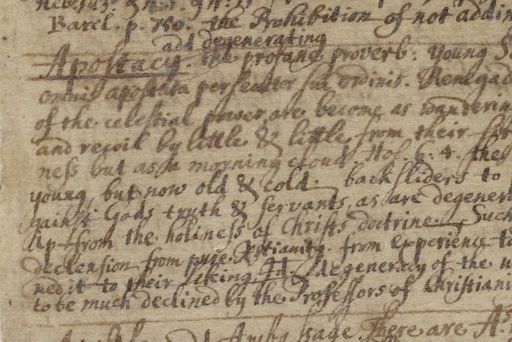 Barcl. p. 750. the Prohibition of not addin
add degenerating
Apostacy. the profane proverb. young Sa
omnis apostata persecutor sui ordinis. Renegad
of the celestial power are become as wanderin
and recoil by little & little from their
ness but as a morning cloud. Hos. 6. 4. they
young, but now old & cold. backsliders to
gainst Gods truth & servants, as are degenera
up from the holiness of Christs doctrine. Such
declension from pure Xstianity. from experience to
ued it to their liking. degeneracy of the
to be much declined by the Professors of Christiani
sage. There are